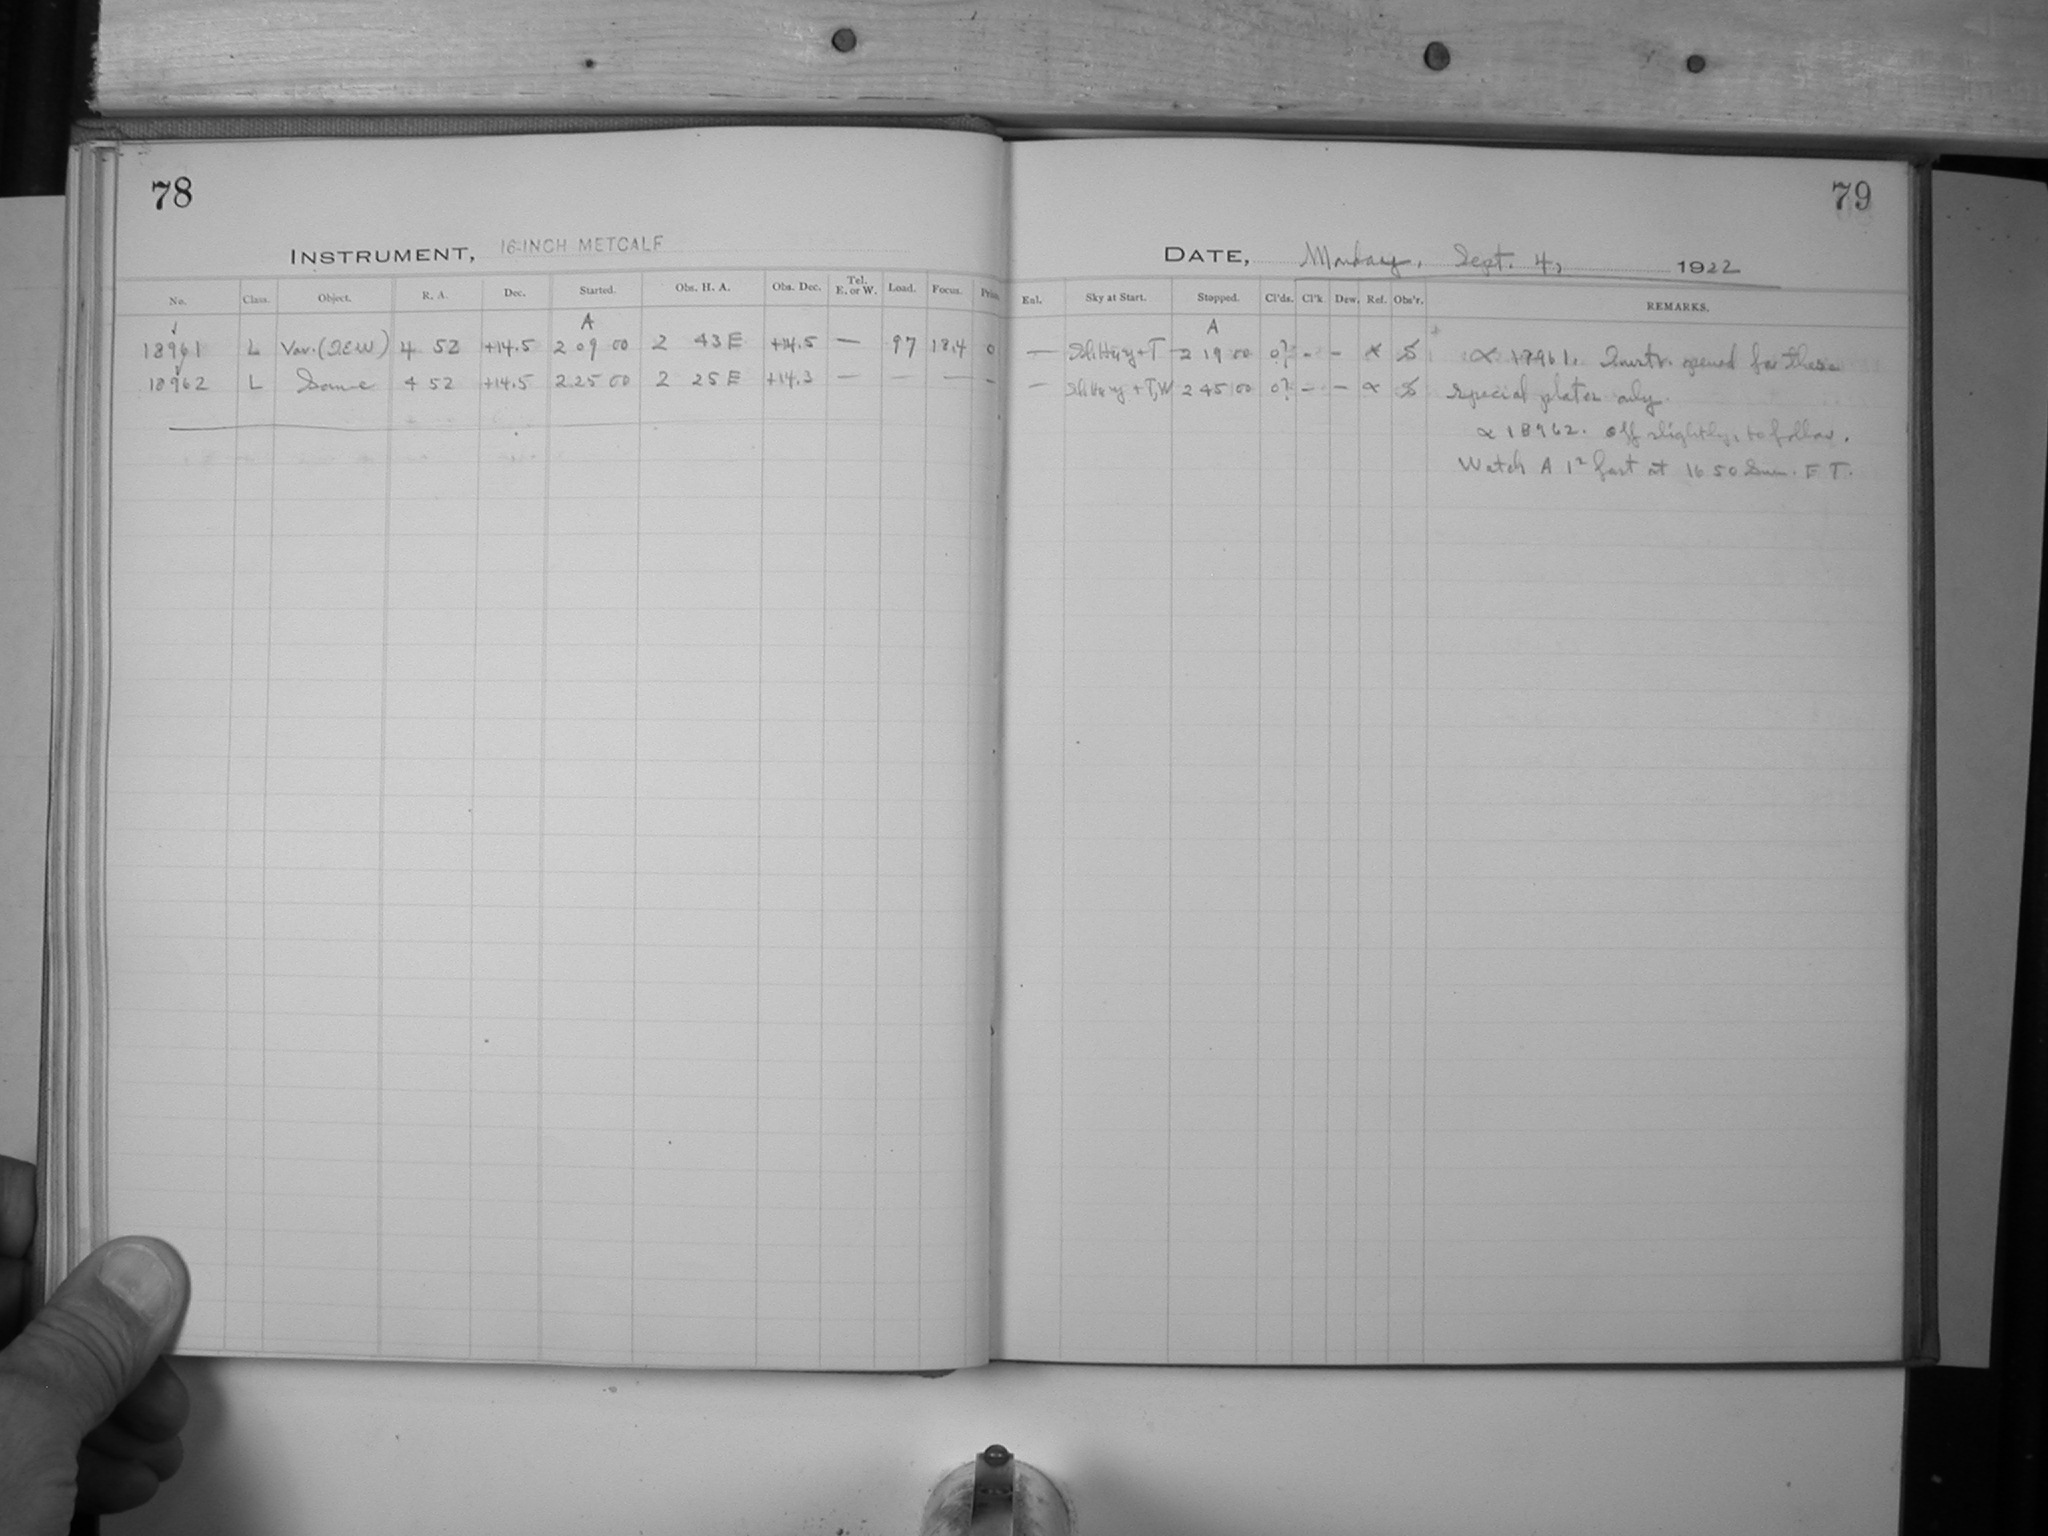 78
INSTRUMENT, 16-INCH METCALF
No. Class. Object. R. A. Dec. Started. Obs. H. A. Obs. Dec. Tel. E. or W. Load. Focus.
A
18961 L Var. 4 52 +14.5 2 09 00 2 43 E +14.5 — 97 18.4 0
18962 L Same 4 52 +14.5 2 25 00 2 25 E +14.3 — — — –
79
DATE, Monday, Sept. 4, 1922
Eal. Sky at Start. Stopped. Cl'ds. Cl'k. Dew. Ref. Obs'r. REMARKS.
A
— Sl. Hazy + T 2 19 00 0? - - ∝ S ∝ 18961. Instr. opened for these
— Sl. Hazy + T, W 2 45 00 0? – – ∝ S special plates only.
∝ 18962. off slightly, to follow.
Watch A 1ˢ fast at 16 50 E T.